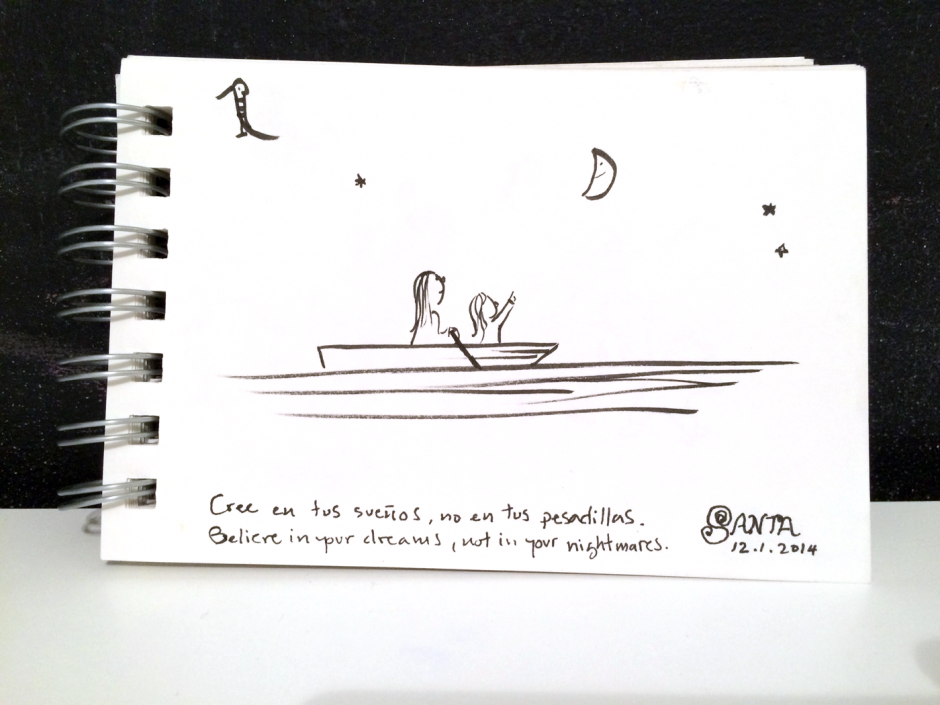 1
Cree en tus sueños, no en tus pesadillas.
Believe in your dreams, not in your nightmares.
SANTA
12.1.2014